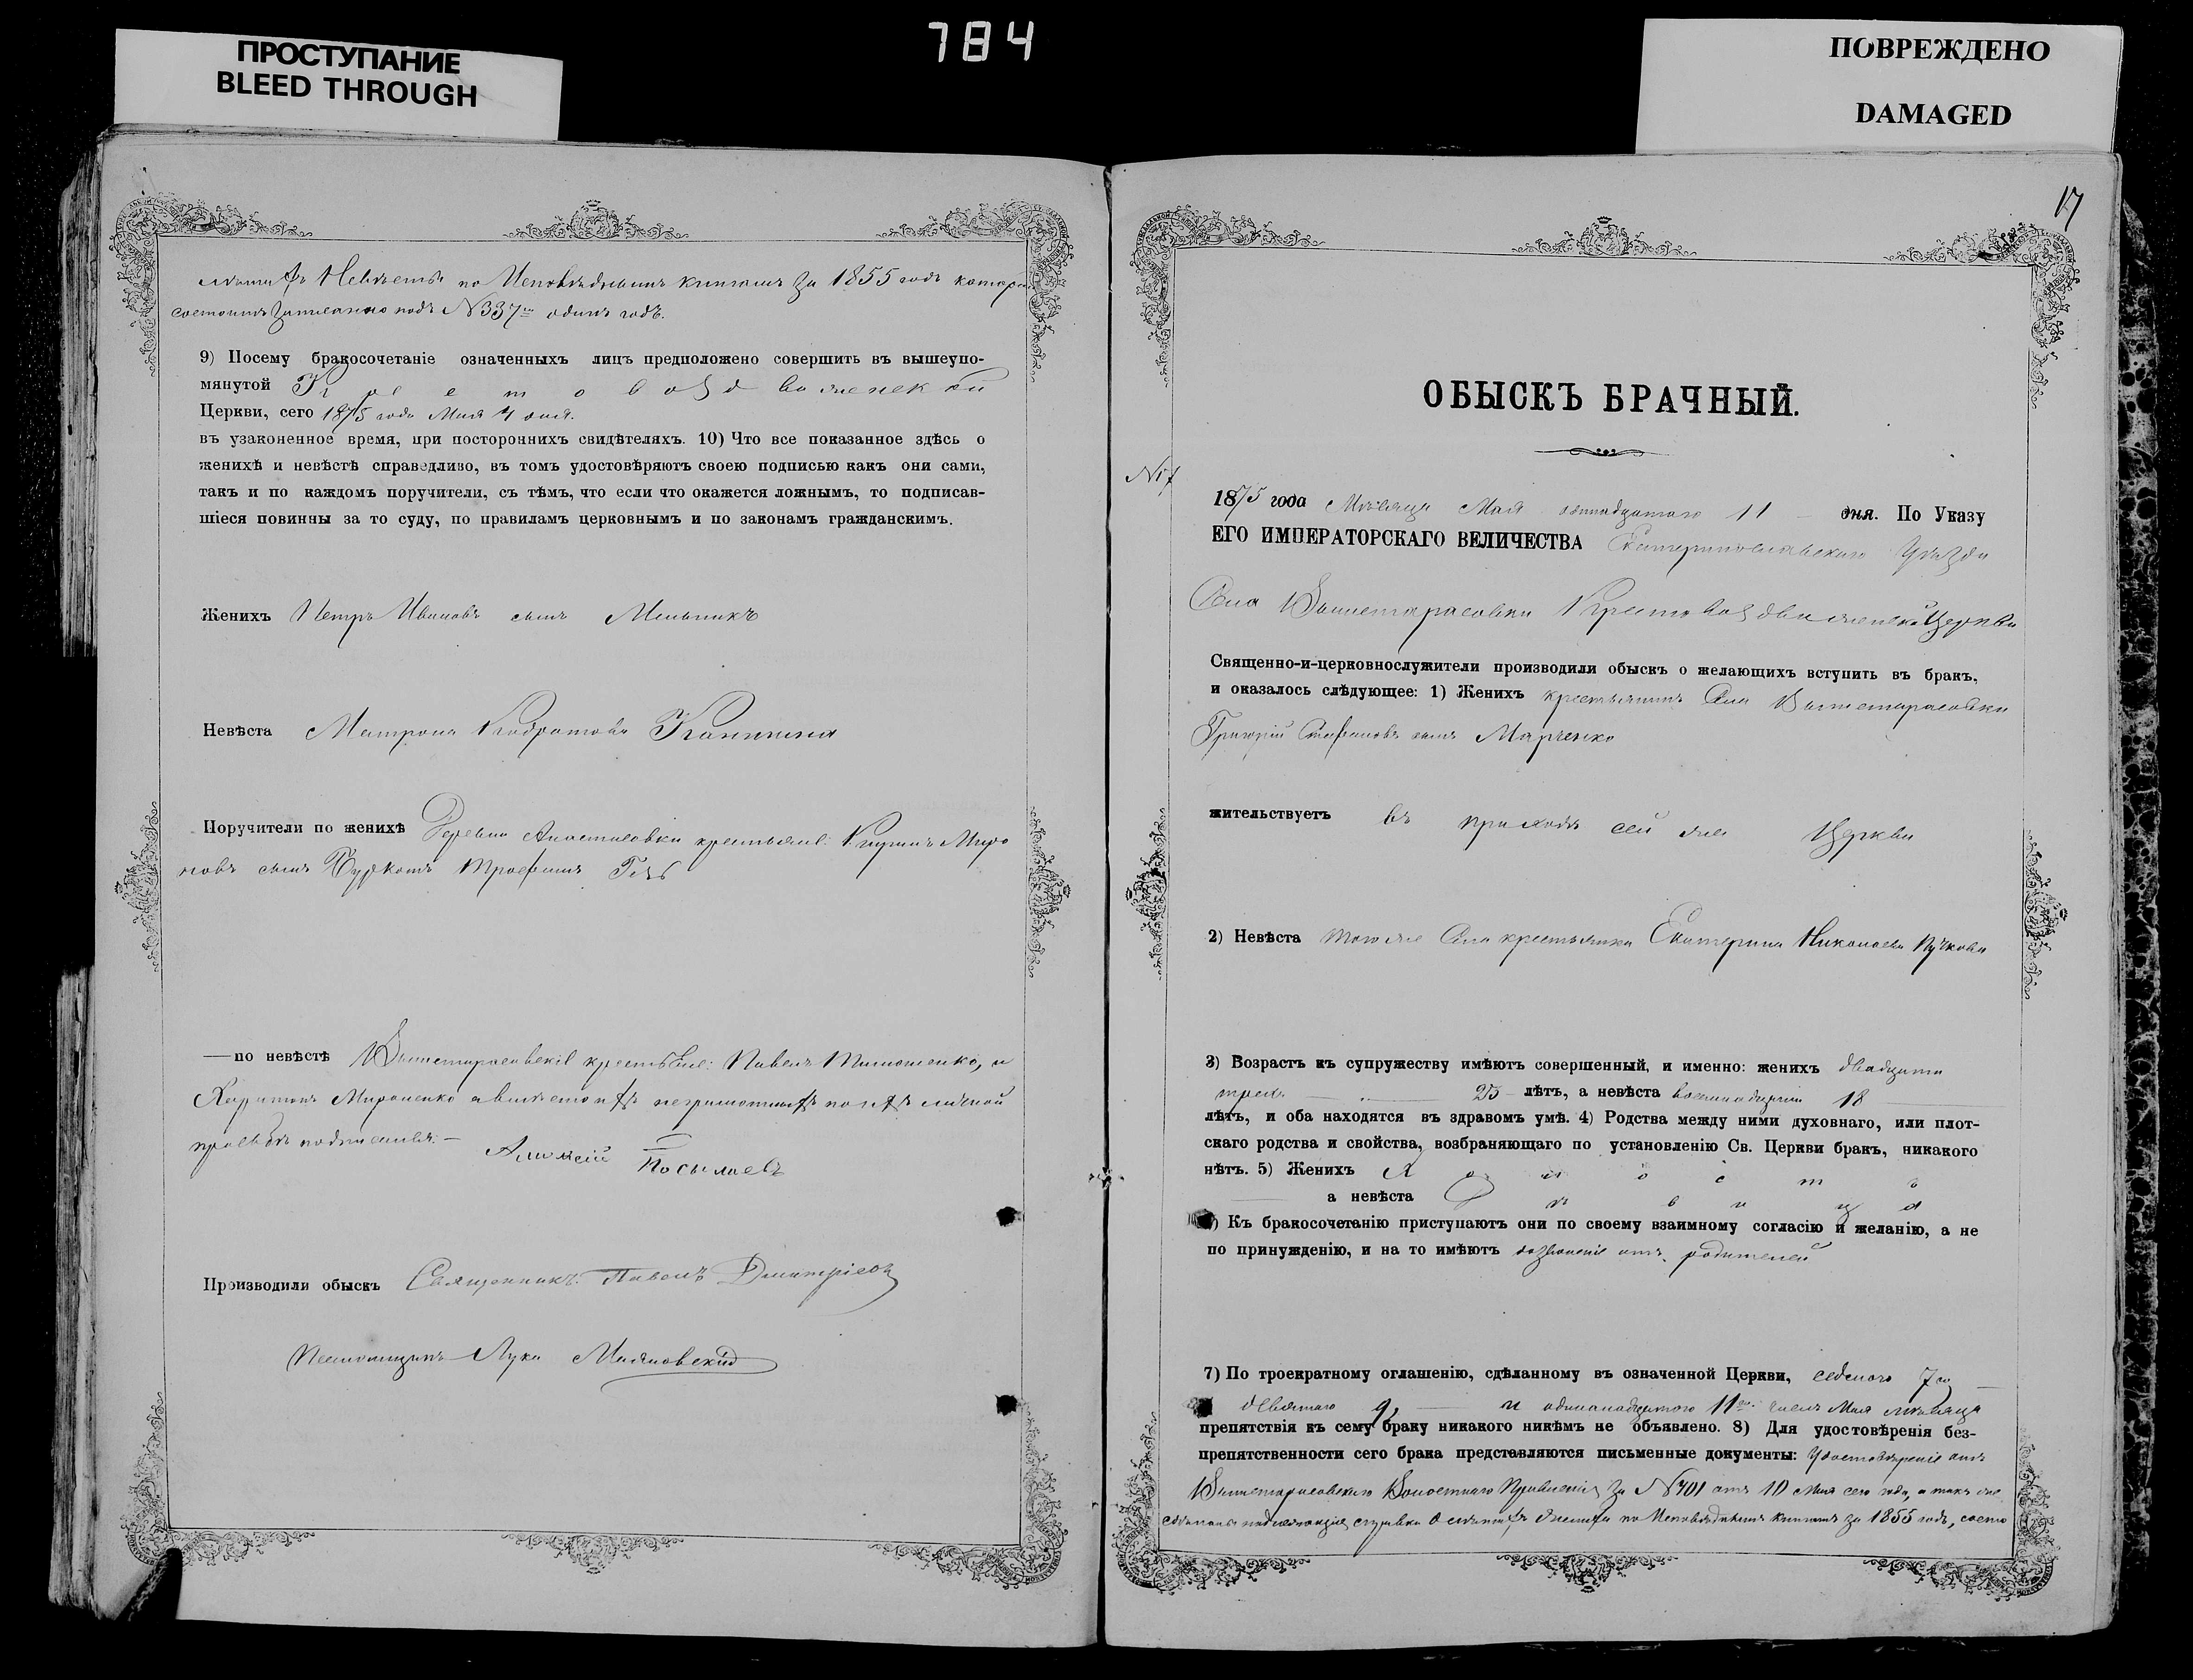 784
ПРОСТУПАНИЕ
BLEED THROUGH
ПОВРЕЖДЕНО
DAMAGED
лѣтахъ Невѣсты по Исповѣднымъ книгамъ за 1855 годъ
состоитъ записано подъ №337 одинъ годъ.
9) Посему бракосочетаніе означенныхъ лицъ предположено совершить въ вышеупо-
мянутой Крестовоздвиженской
Церкви, сего 1875 года Мая 4 дня.
въ узаконенное время, при постороннихъ свидѣтеляхъ. 10) Что все показанное здѣсь о
женихѣ и невѣстѣ справедливо, въ томъ удостовѣряютъ своею подписью какъ они сами,
такъ и по каждомъ поручители, съ тѣмъ, что если что окажется ложнымъ, то подписав-
шіеся повинны за то суду, по правиламъ церковнымъ и по законамъ гражданскимъ.
Женихъ Петръ Ивановъ сынъ Мельникъ
Невѣста Матрона
Поручители по женихѣ Деревни Анастасовки крестьяне: Миро
новъ сынъ Трофимъ
—по невѣстѣ Вышетарасовскіе крестьяне: Павелъ Тимошенко, и
Харитонъ Мироненко а вмѣсто ихъ неграмотныхъ по ихъ личной
просьбѣ подписался:— Алексій
Производили обыскъ Священникъ Павелъ Дмитріевъ
Псаломщикъ Лука
17
ОБЫСКЪ БРАЧНЫЙ.
№17
1875 года Мѣсяца Мая 11 — дня. По Указу
ЕГО ИМПЕРАТОРСКАГО ВЕЛИЧЕСТВА Екатеринославскаго Уѣзда
Села Вышетарасовки Крестовоздвиженской Церкви
Священно-и-церковнослужители производили обыскъ о желающихъ вступить въ бракъ,
и оказалось слѣдующее: 1) Женихъ крестьянинъ Села Вышетарасовки
Григорій Стефановъ сынъ Марченко
жительствуетъ въ приходѣ сей же Церкви
2) Невѣста того же Села крестьянка Екатерина Николаева Пучкова
3) Возрастъ къ супружеству имѣютъ совершенный, и именно: женихъ двадцати
трехъ — лѣтъ, а невѣста 18 —
лѣтъ, и оба находятся въ здравомъ умѣ. 4) Родства между ними духовнаго, или плот-
скаго родства и свойства, возбраняющаго по установленію Св. Церкви бракъ, никакого
нѣтъ. 5) Женихъ Холостъ
— а невѣста Дѣвица
) Къ бракосочетанію приступаютъ они по своему взаимному согласію и желанію, а не
по принужденію, и на то имѣютъ дозволеніе отъ родителей
7) По троекратному оглашенію, сдѣланному въ означенной Церкви, седьмаго 7го —
девятаго 9, — и одинадцатаго 11го числъ Мая мѣсяца
препятствія къ сему браку никакого никѣмъ не объявлено. 8) Для удостовѣренія без-
препятственности сего брака представляются письменные документы: Удостовѣреніе отъ
Вышетарасовскаго Волостнаго Правленія за №701 отъ 10 Мая сего года, а такъ же
справка о лѣтахъ Жениха по Исповѣднымъ книгамъ за 1855 годъ, состо